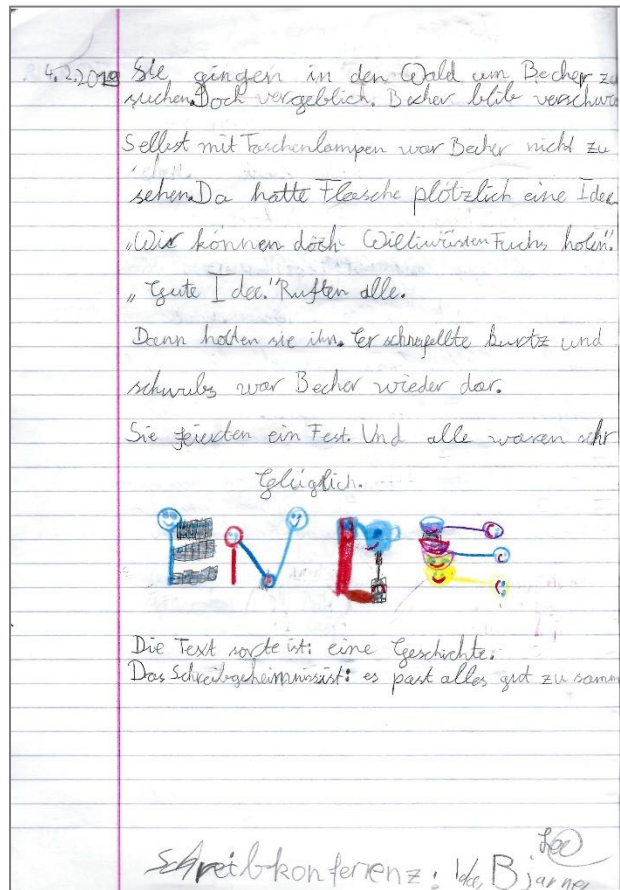 4.2.2019 Sie gingen in den Wald um Becher zu
suchen. Doch vergeblich. Becher blib verschwu
Sellbst mit Taschenlampen war Becher nicht zu
sehen. Da hatte Flasche plötzlich eine Idee
„Wir können doch Williwüsten Fuchs holen."
„Gute Idee." Ruften alle.
Dann holten sie ihn. Er schnüfellte kurtz und
schwubs war Becher wieder dar.
Sie feierten ein Fest. Und alle waren sehr
Glüglich.
ENDE
Die Text sorte ist: eine Geschichte.
Das Schreibgeheimnissist: es past alles gut zu samm
Schreibkonferenz: Ida, Bjarne